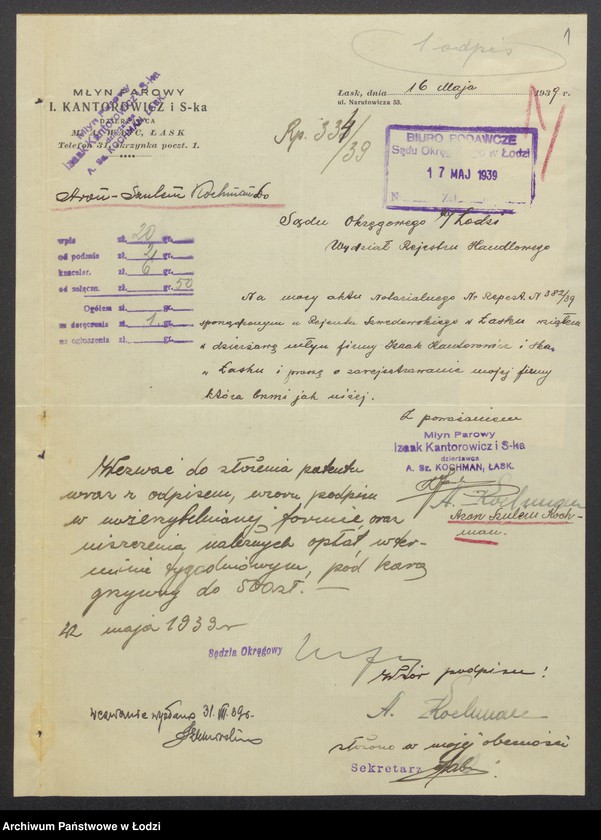 1 odpis
1
MŁYN PAROWY
I. KANTOROWICZ i S-ka
DZIERŻAWCA
ŁASK
Telefon 31, skrzynka poczt. 1.
Młyn Parowy
Izaak Kantorowicz i S-ka
dzierżawca
A. Sz. KOCHMAN, ŁASK.
Łask, dnia 16 Maja 1939 r.
ul. Narutowicza 53.
Rp. 334/39
BIURO PODAWCZE
Sądu Okręgowego w Łodzi
17 MAJ 1939
N Zał.
Aron-Szulem Kochmański
Sądu Okręgowego w/Łodzi
Wydział Rejestru Handlowego
wpis zł. 20 gr.
od podania zł. 2 gr.
kancelar. zł. 6 gr.
od załącz. zł. gr. 50
Ogółem zł. gr.
za doręczenia zł. 1 gr.
za ogłoszenia zł. gr.
Na mocy aktu Notarialnego Nr Repert. N 382/39
sporządzonym u Rejenta Szwedowskiego w Łasku wziąłem
w dzierżawę młyn firmy Izaak Kantorowicz i Ska.
w Łasku i proszę o zarejestrowanie mojej firmy
która brzmi jak niżej.
Z poważaniem
Młyn Parowy
Izaak Kantorowicz i S-ka
dzierżawca
A. SZ. KOCHMAN, ŁASK.
A. Kochman
Aron Szulem Koch-
man.
Wezwać do złożenia patentu
wraz z odpisem, wzoru podpisu
w uwierzytelnianej formie oraz
uiszczenia należnych opłat w ter-
minie tygodniowym, pod karą
grzywny do 500 zł. —
22 maja 1939 r
Sędzia Okręgowy
Wzór podpisu:
A. Kochman
złożono w mojej obecności
Sekretarz
wezwanie wysłano 31. VII. 39 r.
Archiwum Państwowe w Łodzi